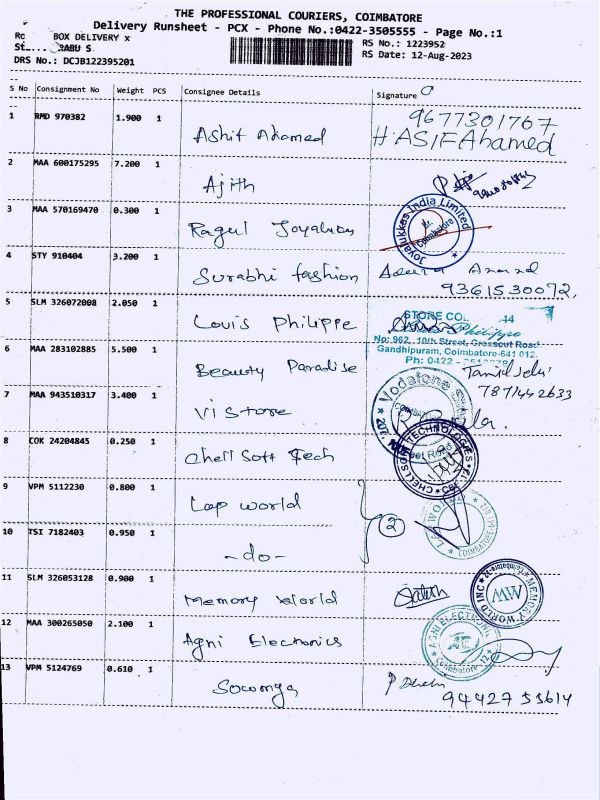 THE PROFESSIONAL COURIERS, COIMBATORE
Delivery Runsheet - PCX - Phone No.:0422-3505555 - Page No.:1
BOX DELIVERY x
RS No.: 1223952
RABU S
RS Date: 12-Aug-2023
DRS No.: DCJB122395201
S No Consignment No Weight PCS Consignee Details Signature
1 RMD 970382 1.900 1 Ashif Ahamed 9677301767
H. ASIF Ahamed
2 MAA 600175295 7.200 1 Ajith
3 MAA 570169470 0.300 1 Ragul Joyalukas
Joyalukkas India Limited
Br. Coimbatore
4 STY 910404 3.200 1 Surabhi fashion Anand
9361530072,
5 SLM 326072008 2.050 1 Louis Philippe
STORE CO 44
Philippe
No: 962, 10th Street, Crosscut Road
Gandhipuram, Coimbatore-641 012.
Ph: 0422 -
6 MAA 283102885 5.500 1 Beauty Paradise Tamil selvi
7871442633
7 MAA 943510317 3.400 1 Vi Store
Vodafone
8 COK 24204845 0.250 1 Chell Soft Tech
CHELLSOFT TECHNOLOGIES
9 VPM 5112230 0.800 1 Lap world
2
10 TSI 7182403 0.950 1 -do-
COIMBATORE
11 SLM 326053128 0.900 1 Memory World Satish
MEMORY WORLD INC
MW
12 MAA 300265050 2.100 1 Agni Electronics
AGNI ELECTRONIC
Coimbatore-12
13 VPM 5124769 0.610 1 Socomga
94427 55614